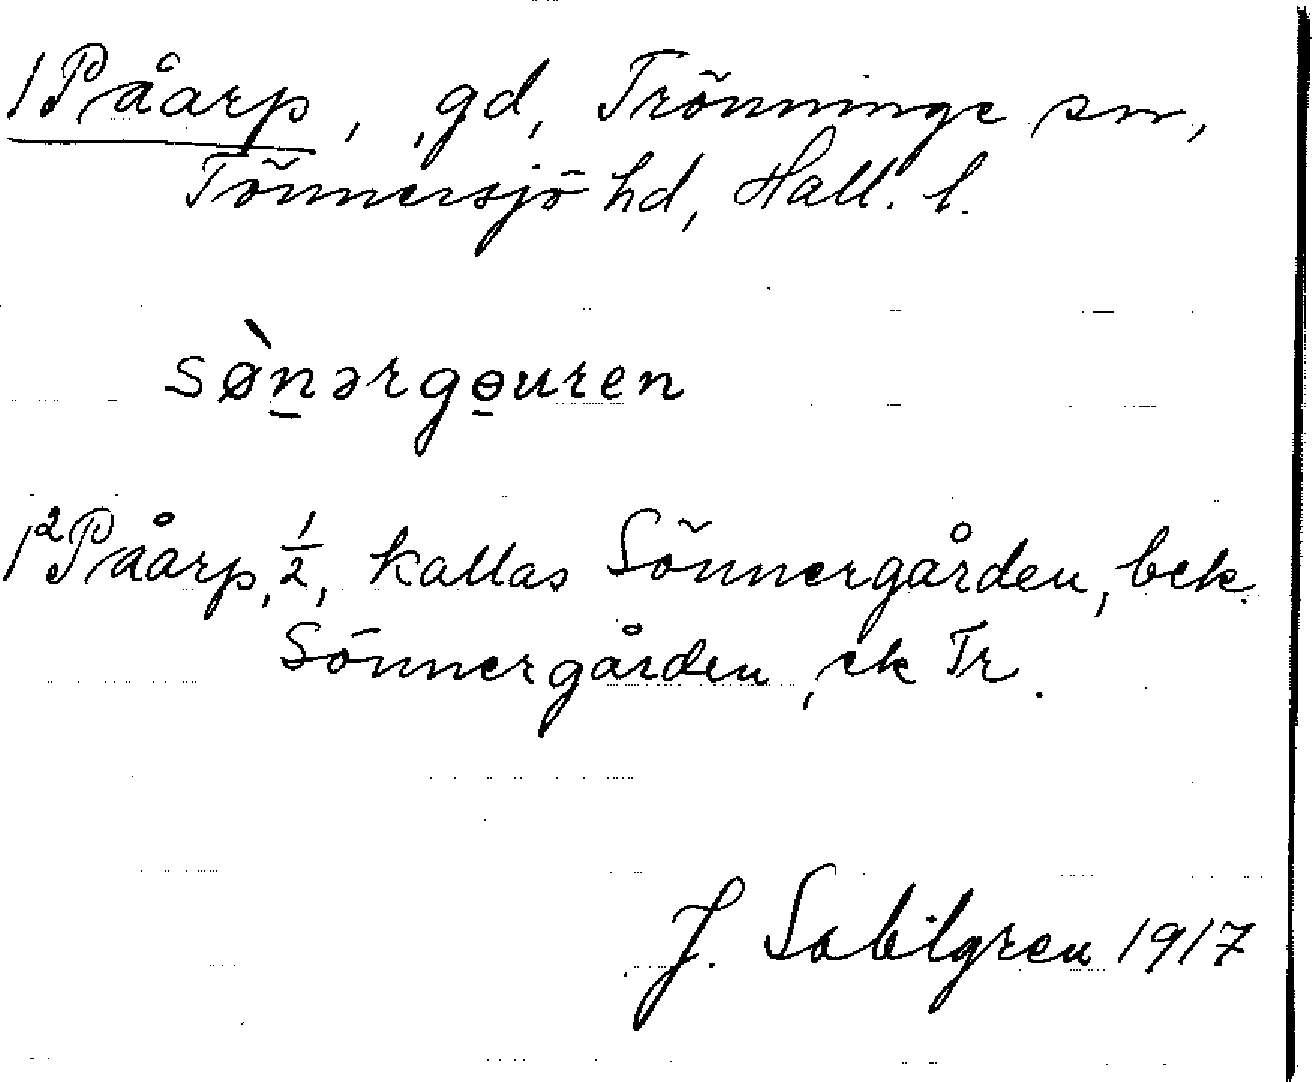 1 Påarp, gd, Trönninge sn,
Tönnersjö hd, Hall. l.
sø̀n̲ərgɵ̲uren
1² Påarp, ½, kallas Sönnergården, bek.
Sönnergården, ek Tr.
J. Sahlgren 1917